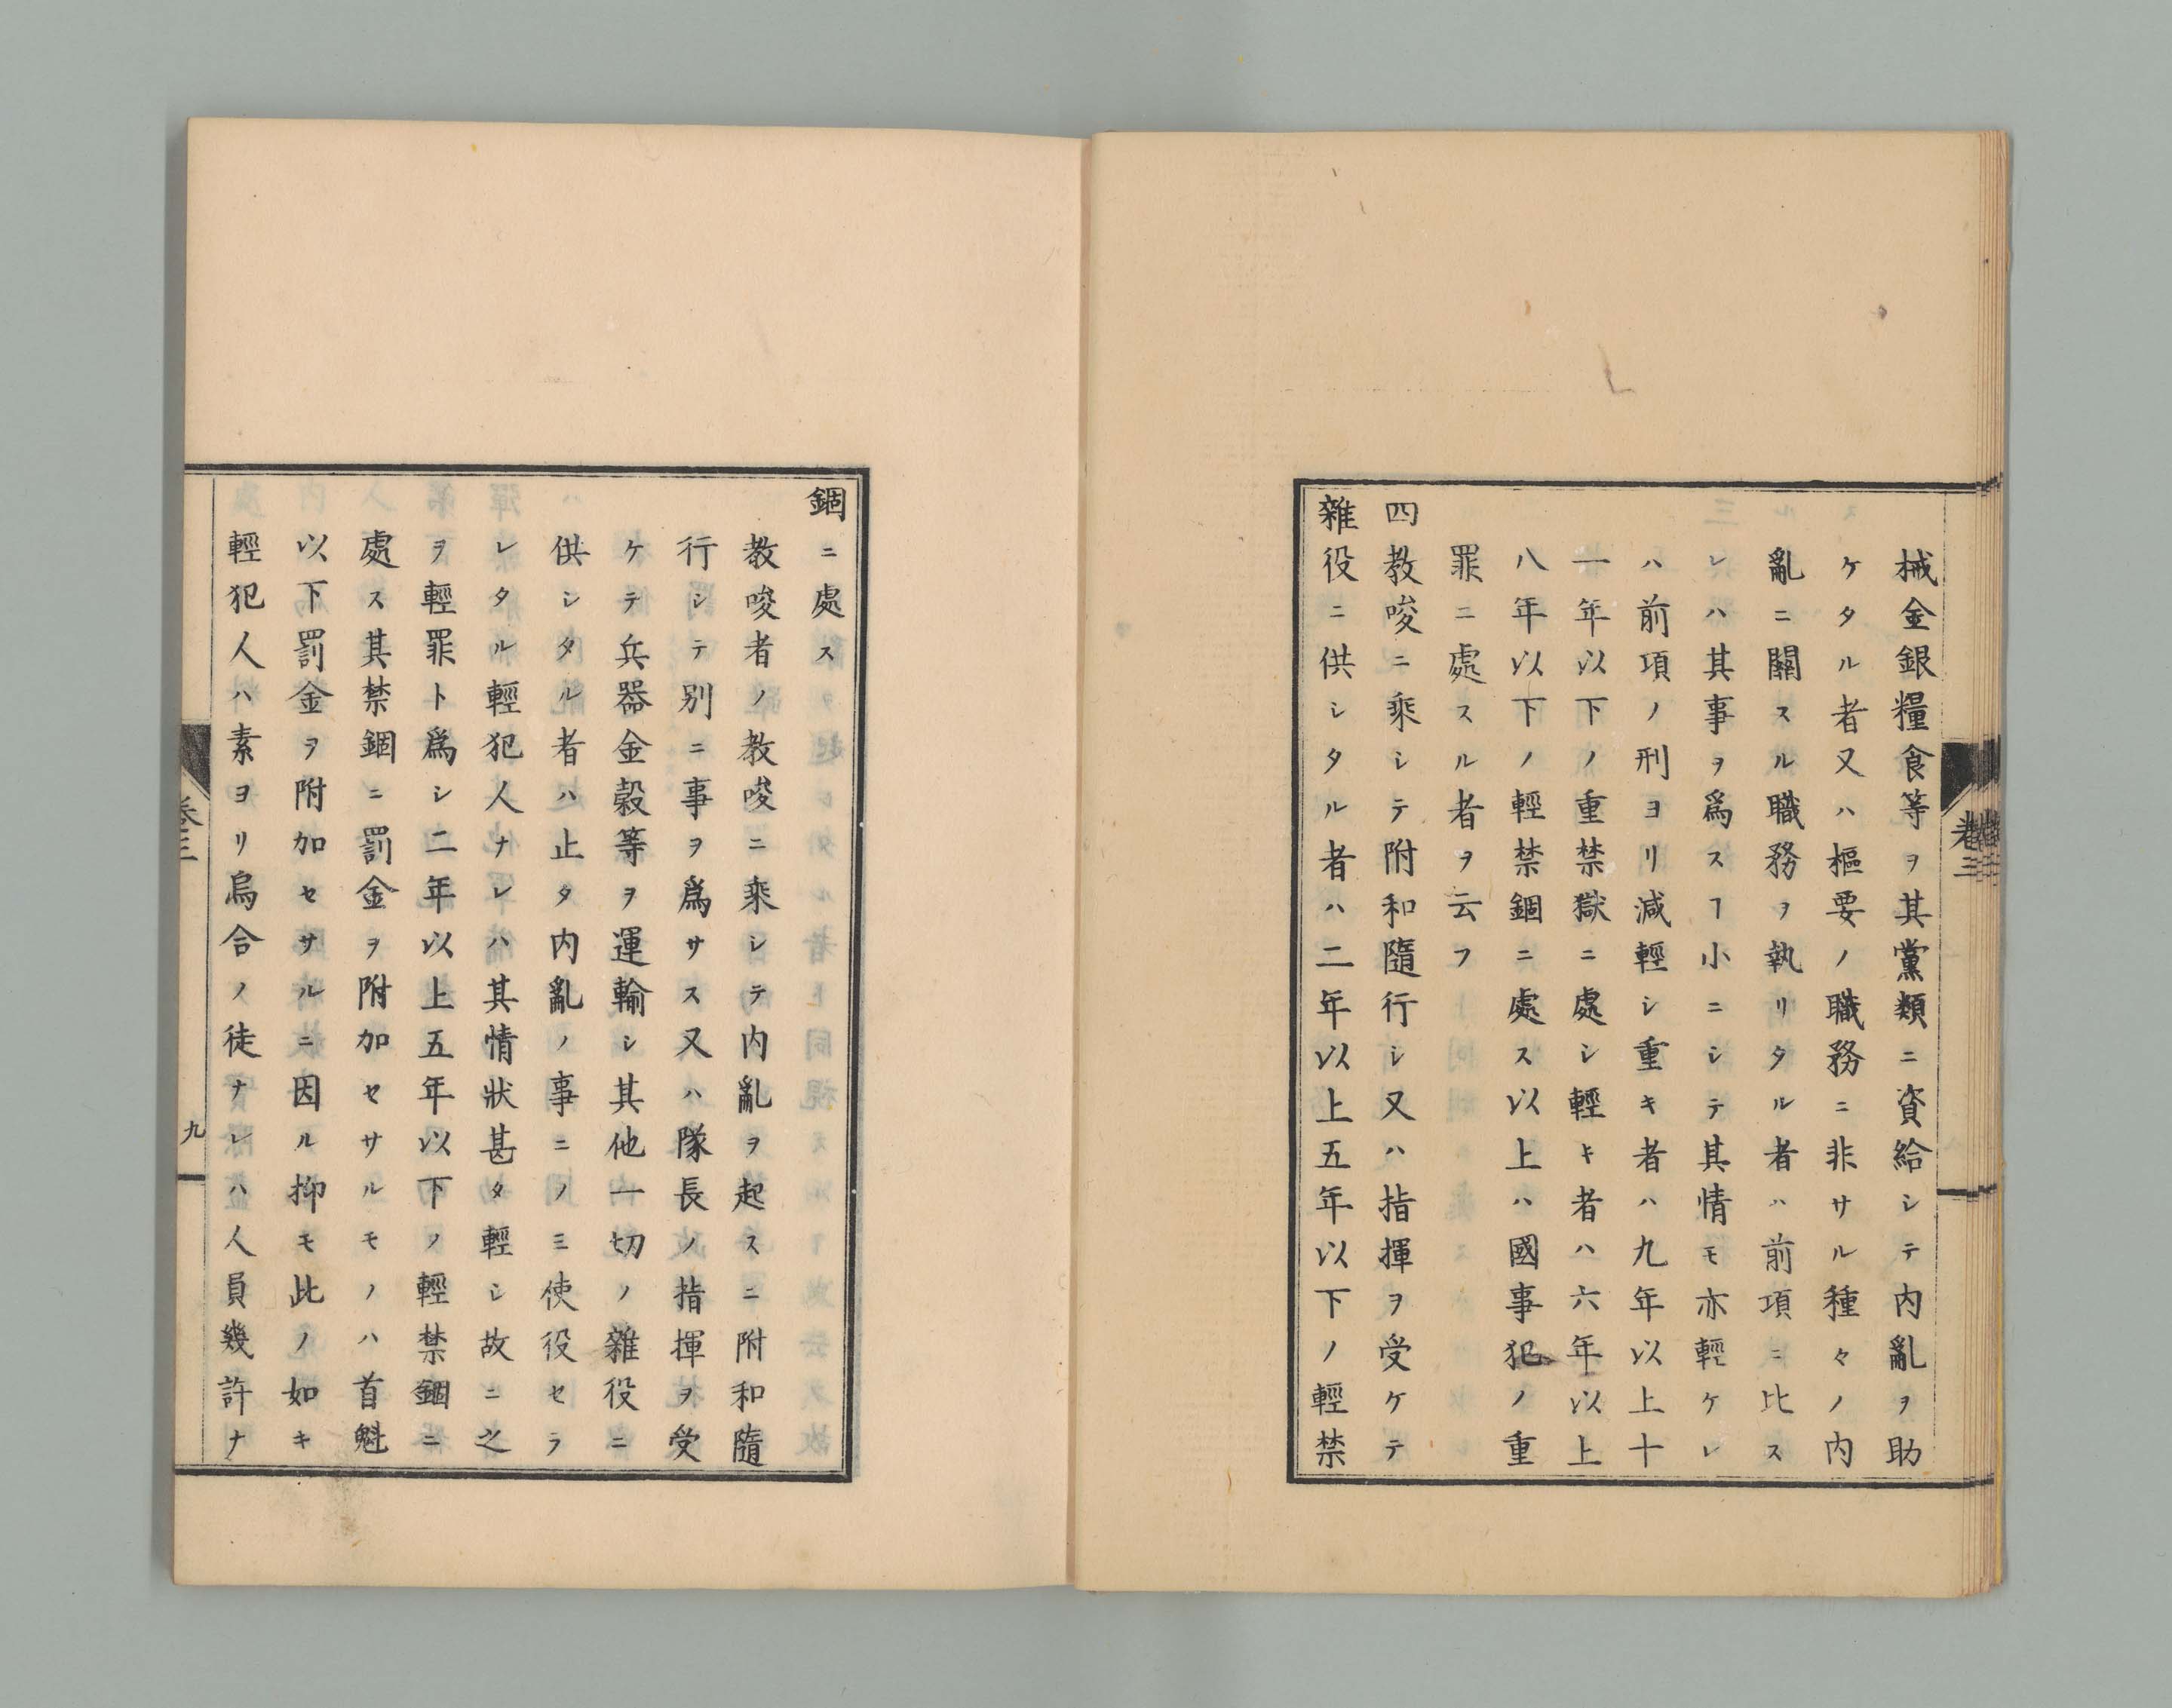 械金銀糧食等ヲ其黨類ニ資給シテ内亂ヲ助
ケタル者又ハ樞要ノ職務ニ非サル種々ノ内
亂ニ關スル職務ヲ執リタル者ハ前項ニ比ス
レハ其事ヲ爲スヿ小ニシテ其情モ亦輕ケレ
ハ前項ノ刑ヨリ減輕シ重キ者ハ九年以上十
一年以下ノ重禁獄ニ處シ輕キ者ハ六年以上
八年以下ノ輕禁錮ニ處ス以上ハ國事犯ノ重
罪ニ處スル者ヲ云フ
四教唆ニ乘シテ附和隨行シ又ハ指揮ヲ受ケテ
雜役ニ供シタル者ハ二年以上五年以下ノ輕禁
卷三
錮ニ處ス
教唆者ノ教唆ニ乘シテ内亂ヲ起スニ附和隨
行シテ別ニ事ヲ爲サス又ハ隊長ノ指揮ヲ受
ケテ兵器金穀等ヲ運輸シ其他一切ノ雜役ニ
供シタル者ハ止タ内亂ノ事ニノミ使役セラ
レタル輕犯人ナレハ其情狀甚タ輕シ故ニ之
ヲ輕罪ト爲シ二年以上五年以下ノ輕禁錮ニ
處ス其禁錮ニ罰金ヲ附加セサルモノハ首魁
以下罰金ヲ附加セサルニ因ル抑モ此ノ如キ
輕犯人ハ素ヨリ烏合ノ徒ナレハ人員幾許ナ
卷三
九